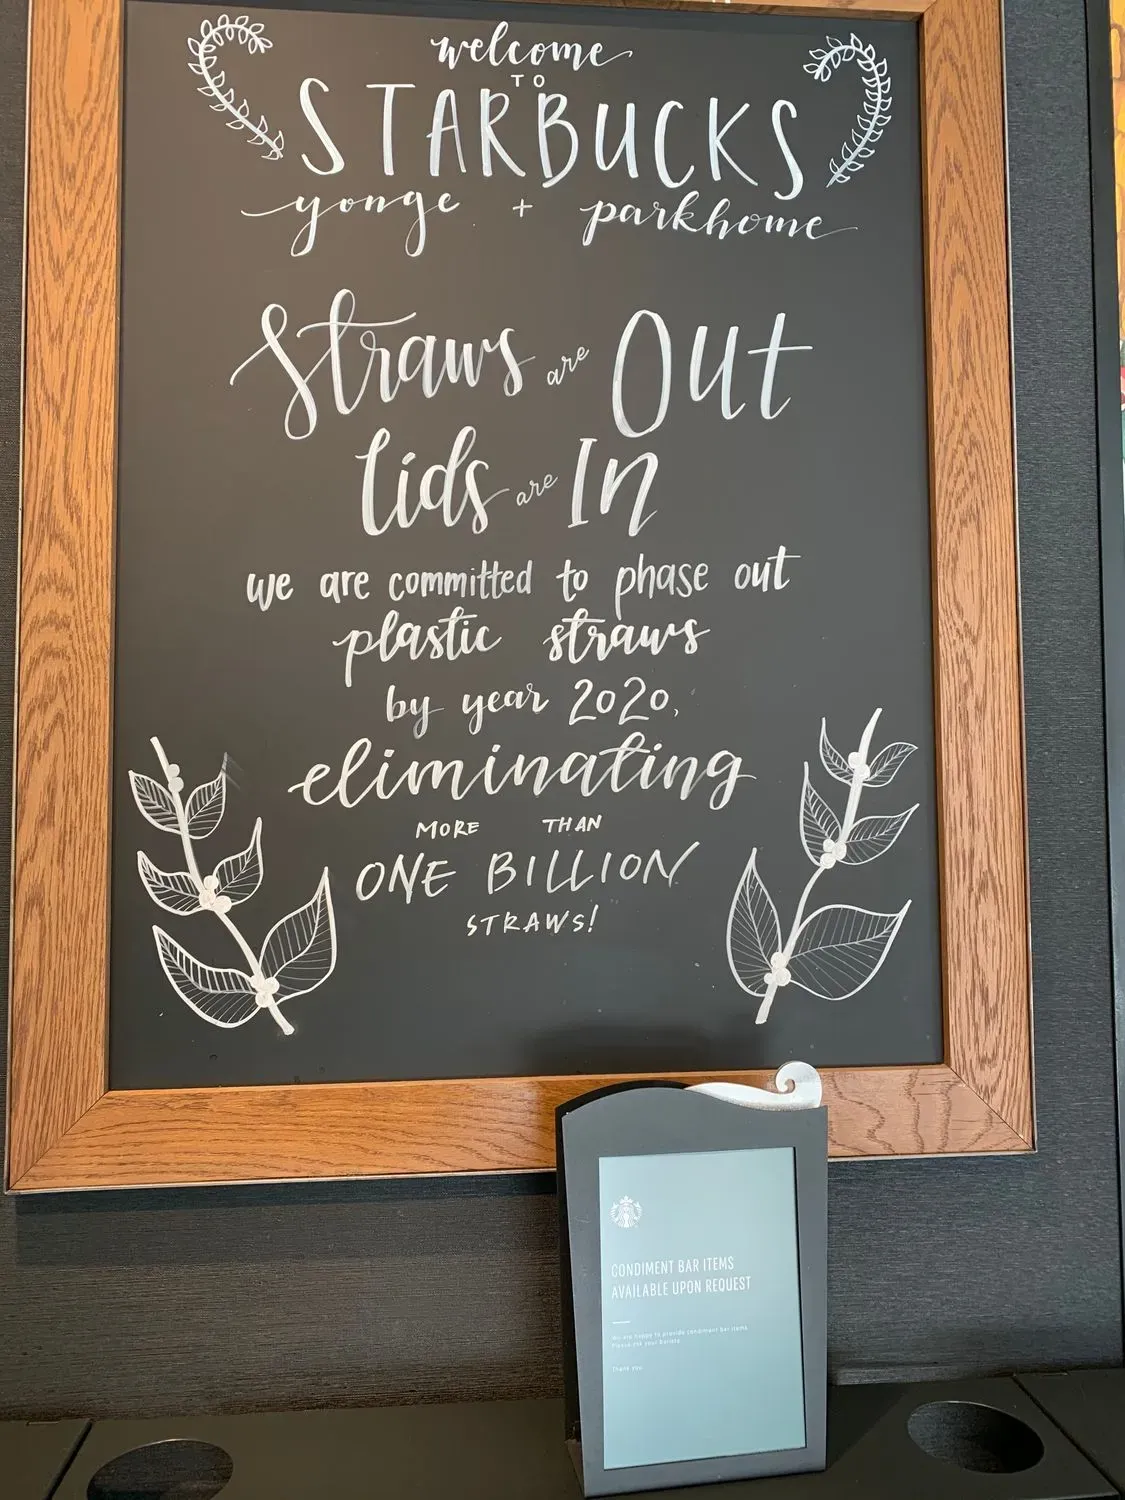 welcome
TO
STARBUCKS
yonge + parkhome
Straws are Out
lids are In
we are committed to phase out
plastic straws
by year 2020,
eliminating
MORE THAN
ONE BILLION
STRAWS!
CONDIMENT BAR ITEMS
AVAILABLE UPON REQUEST
We are happy to provide condiment bar items.
Please ask your barista.
Thank you